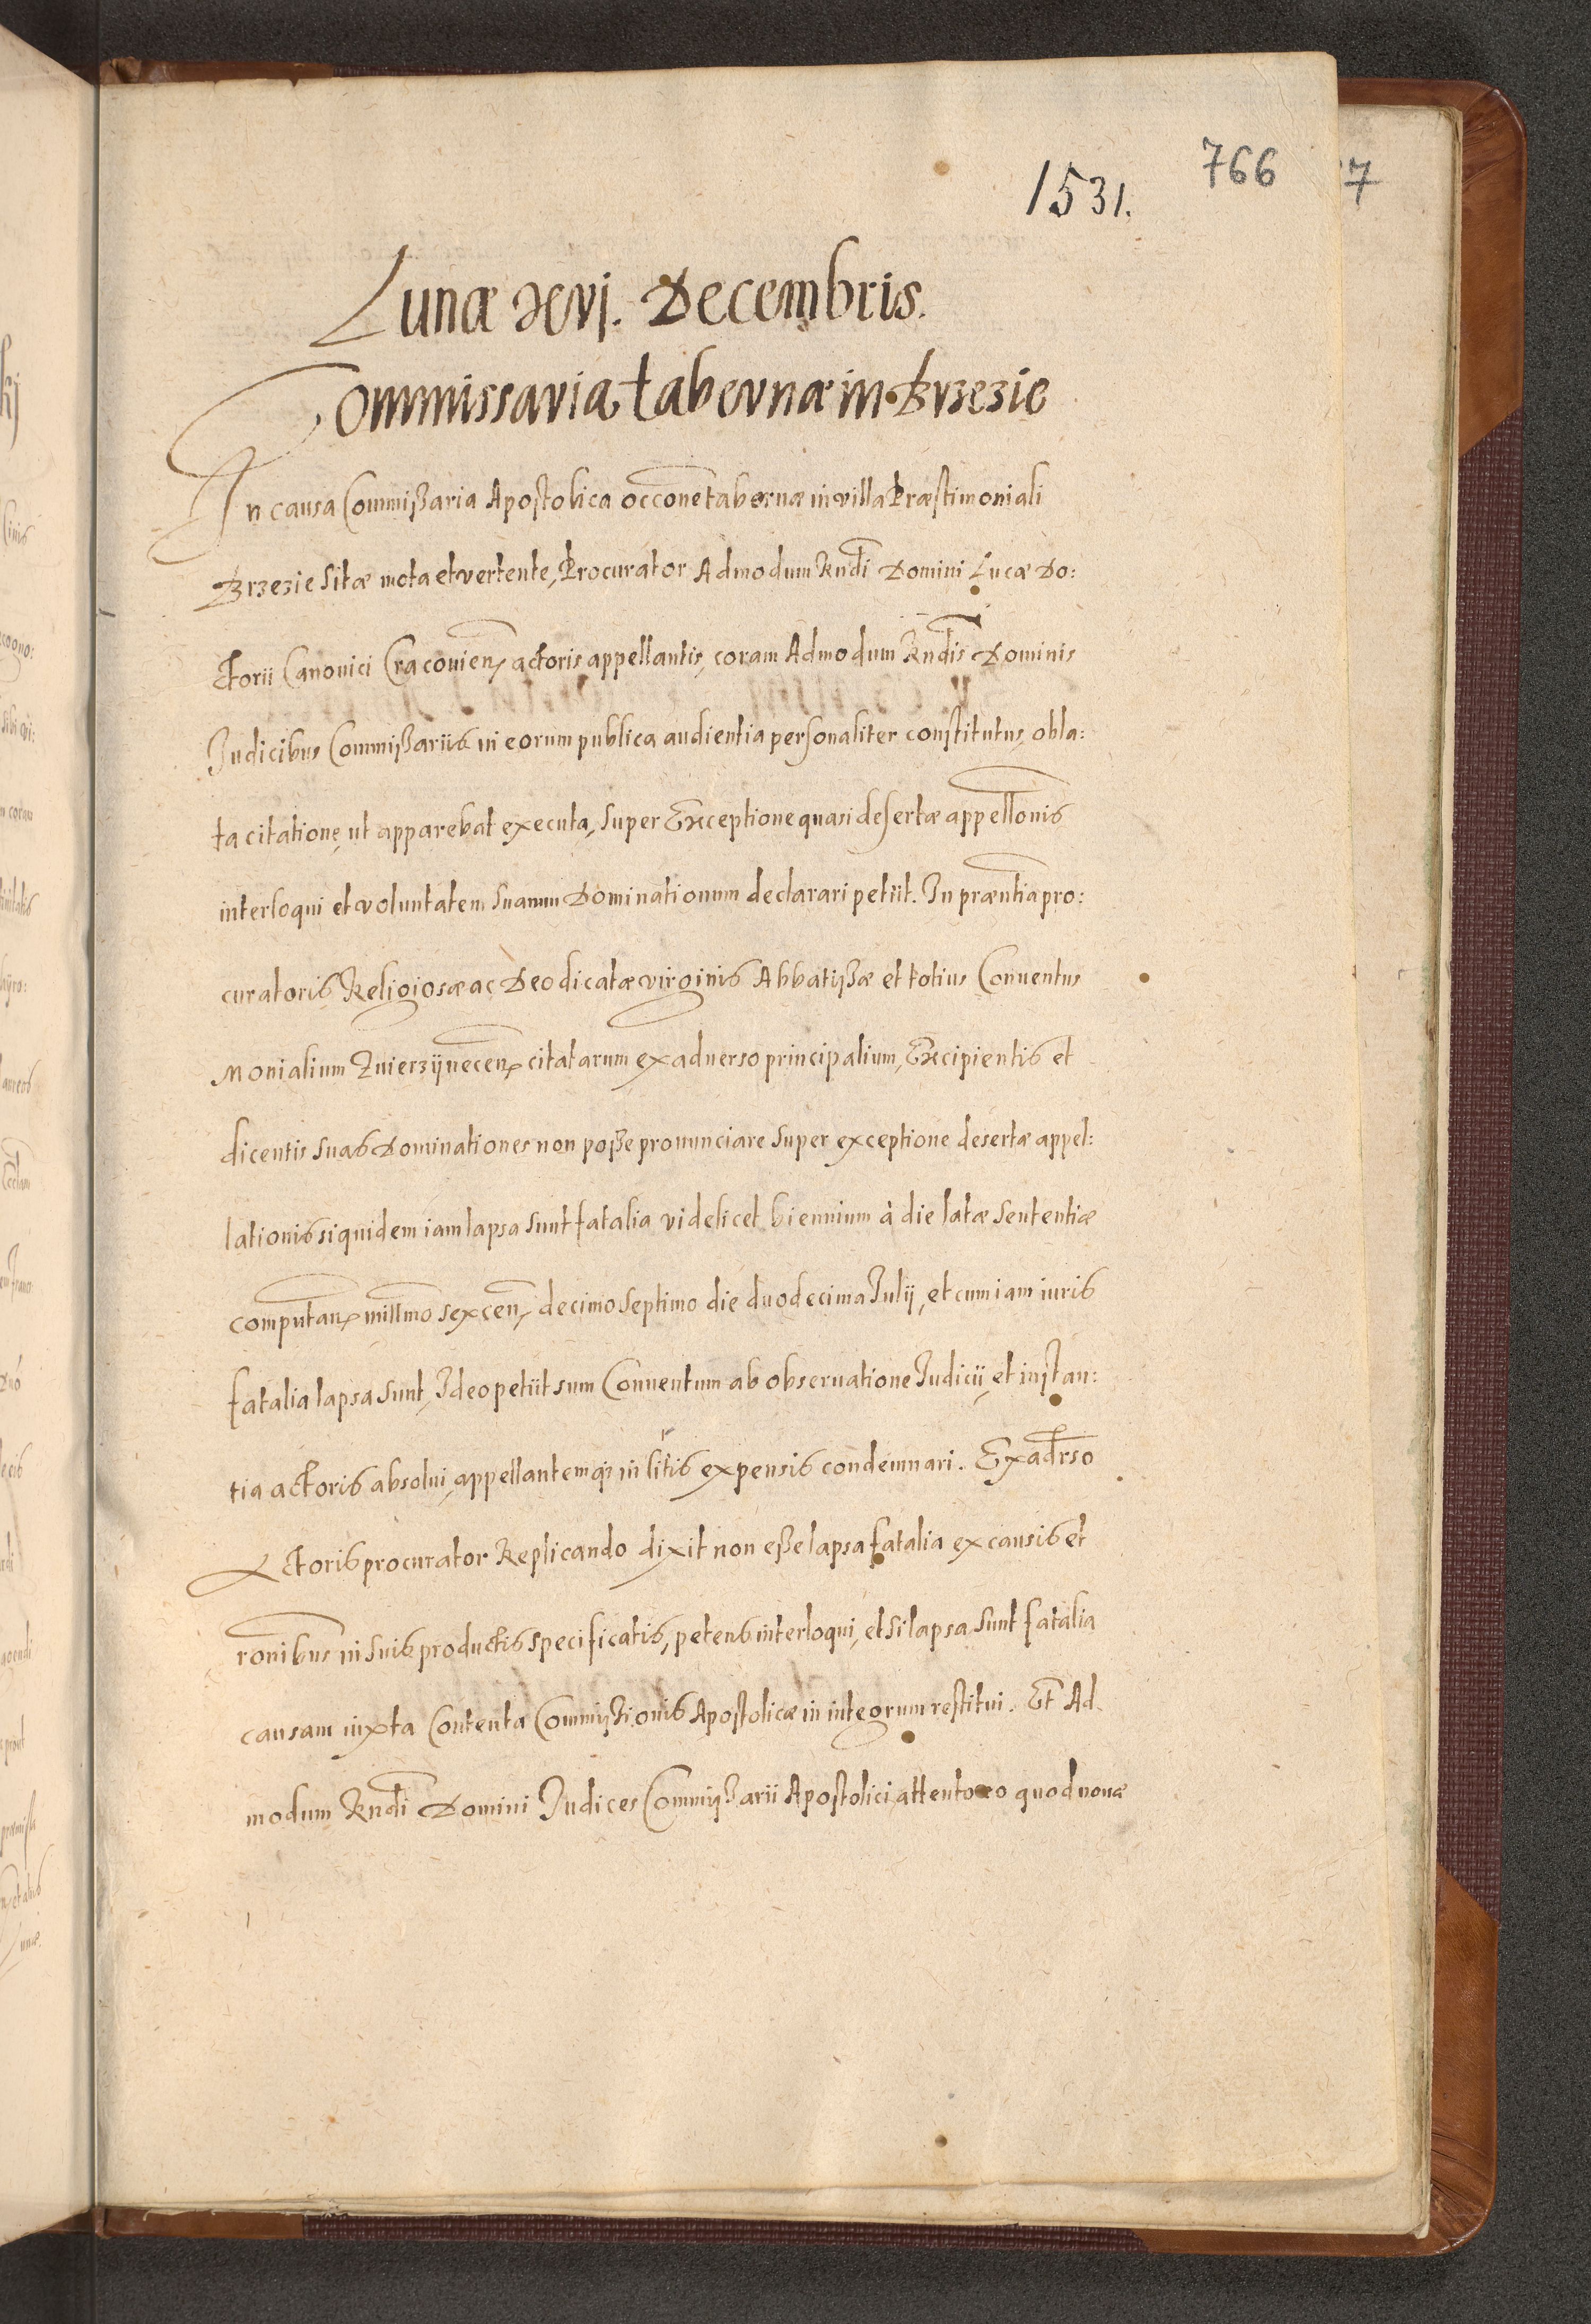 766
1531.
Lunæ xvi. Decembris.
Commissaria tabernæ in Brzezie
In causa Commißaria Apostolica occone tabernæ in villa Præstimoniali
Brzezie sitæ mota et vertente, Procurator Admodum Rndi Domini Lucæ Do:
ctorii Canonici Cracovien, actoris appellantis, coram Admodum Rndis Dominis
Judicibus Commißariis in eorum publica audientia personaliter constitutus, obla:
ta citatione, ut apparebat executa, super Exceptione quasi desertæ appellonis
interloqui et voluntatem suarum Dominationum declarari petiit. In præntia pro:
curatoris Religiosæ ac Deo dicatæ virginis Abbatißæ et totius Conventus
Monialium Zvierzÿnecen, citatarum ex adverso principalium, Excipientis et
dicentis suas Dominationes non poße pronunciare super exceptione desertæ appel:
lationis siquidem iam lapsa sunt fatalia videlicet biennium à die latæ sententiæ
computan, millmo sexcen, decimo septimo die duodecima Julij, et cum iam iuris
fatalia lapsa sunt, Ideo petiit sum Conventum ab observatione Judicij, et instan:
tia actoris absolvi, appellantemq3 in litis expensis condemnari. Ex adrso
Actoris procurator Replicando dixit non eße lapsa fatalia ex causis et
ronibus in suis productis specificatis, petens interloqui, et si lapsa sunt fatalia
causam iuxta Contenta Commißionis Apostolicæ in integrum restitui. Et Ad
modum Rndi Domini Judices Commißarii Apostolici, attento eo quod novæ